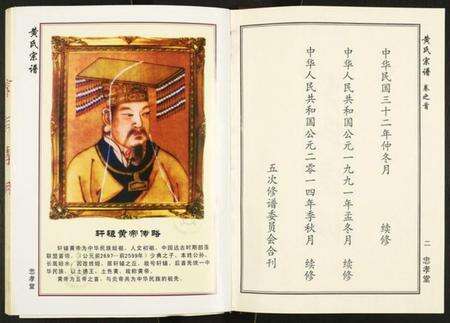 黄氏宗谱
轩辕黄帝传略
轩辕黄帝为中华民族始祖，人文初祖，中国远古时期部落
联盟首领，公元前2697—前2599年，少典之子，本姓公孙，
长居姬水，因改姓姬，居轩辕之丘，故号轩辕，后首先统一中
华民族，以土德王，土色黄，故称黄帝。
黄帝为五帝之首，与炎帝共为中华民族的祖先。
忠孝堂
黄氏宗谱
卷之首
中华民国三十二年仲冬月 续修
中华人民共和国公元一九九一年孟冬月 续修
中华人民共和国公元二零一四年季秋月 续修
五次修谱委员会合刊
二
忠孝堂